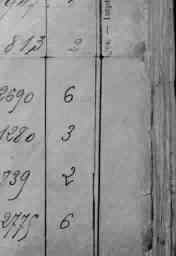 813 2
2690 6
1280 3
739 2
2775 6